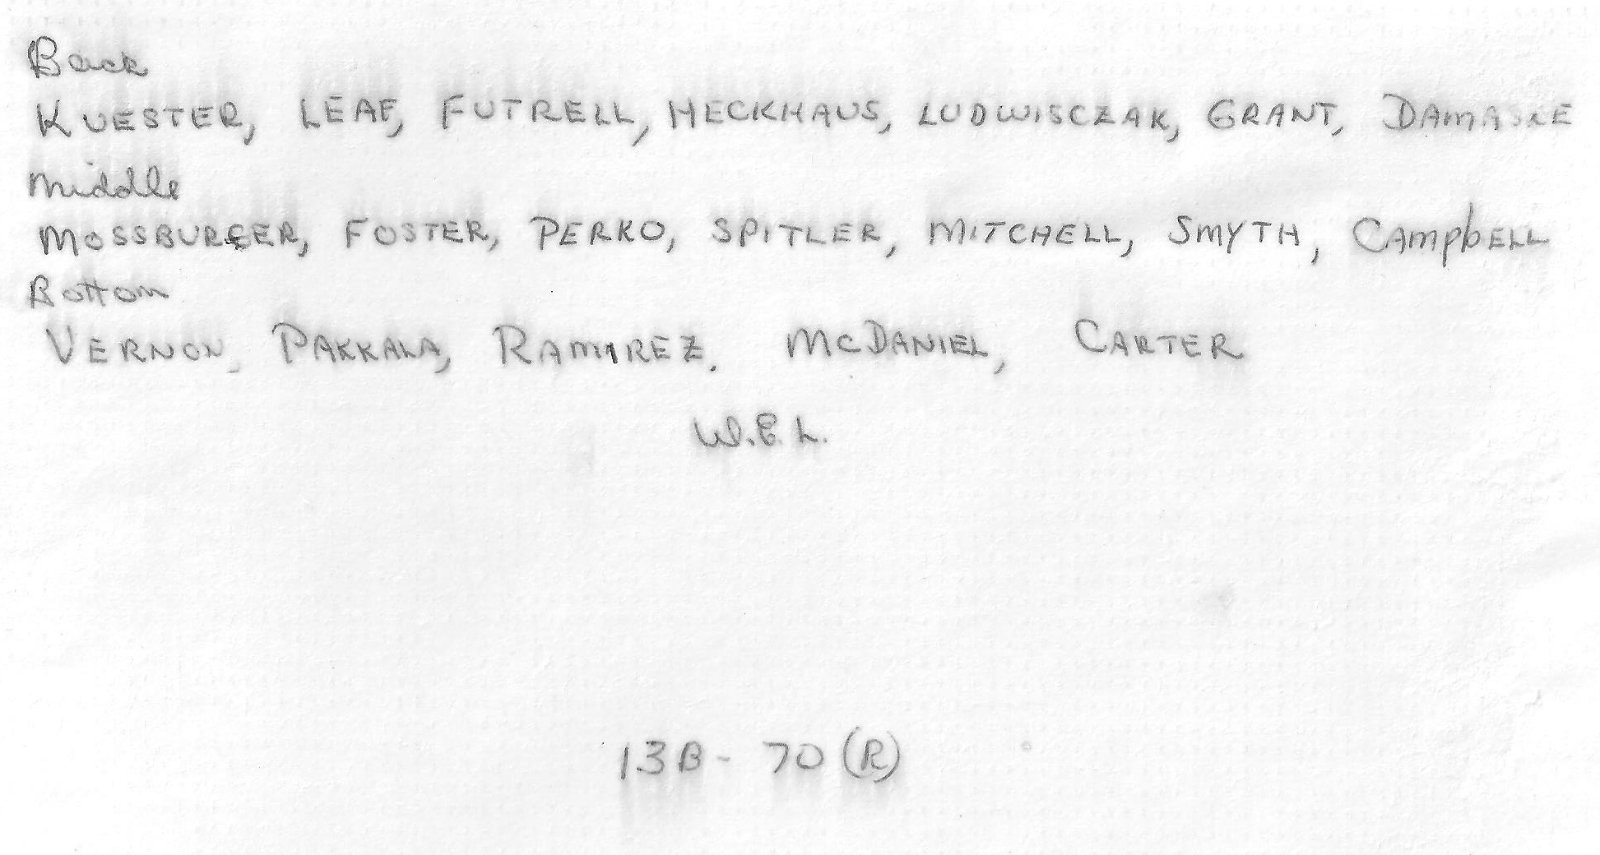 Back
KUESTER, LEAF, FUTRELL, HECKHAUS, LUDWISCZAK, GRANT, DAMASKE
Middle
MOSSBURGER, FOSTER, PERKO, SPITLER, MITCHELL, SMYTH, CAMPbELL
Bottom
VERNON, PAKKALA, RAMIREZ, McDANIEL, CARTER
W.E.L.
13B - 70 (R)